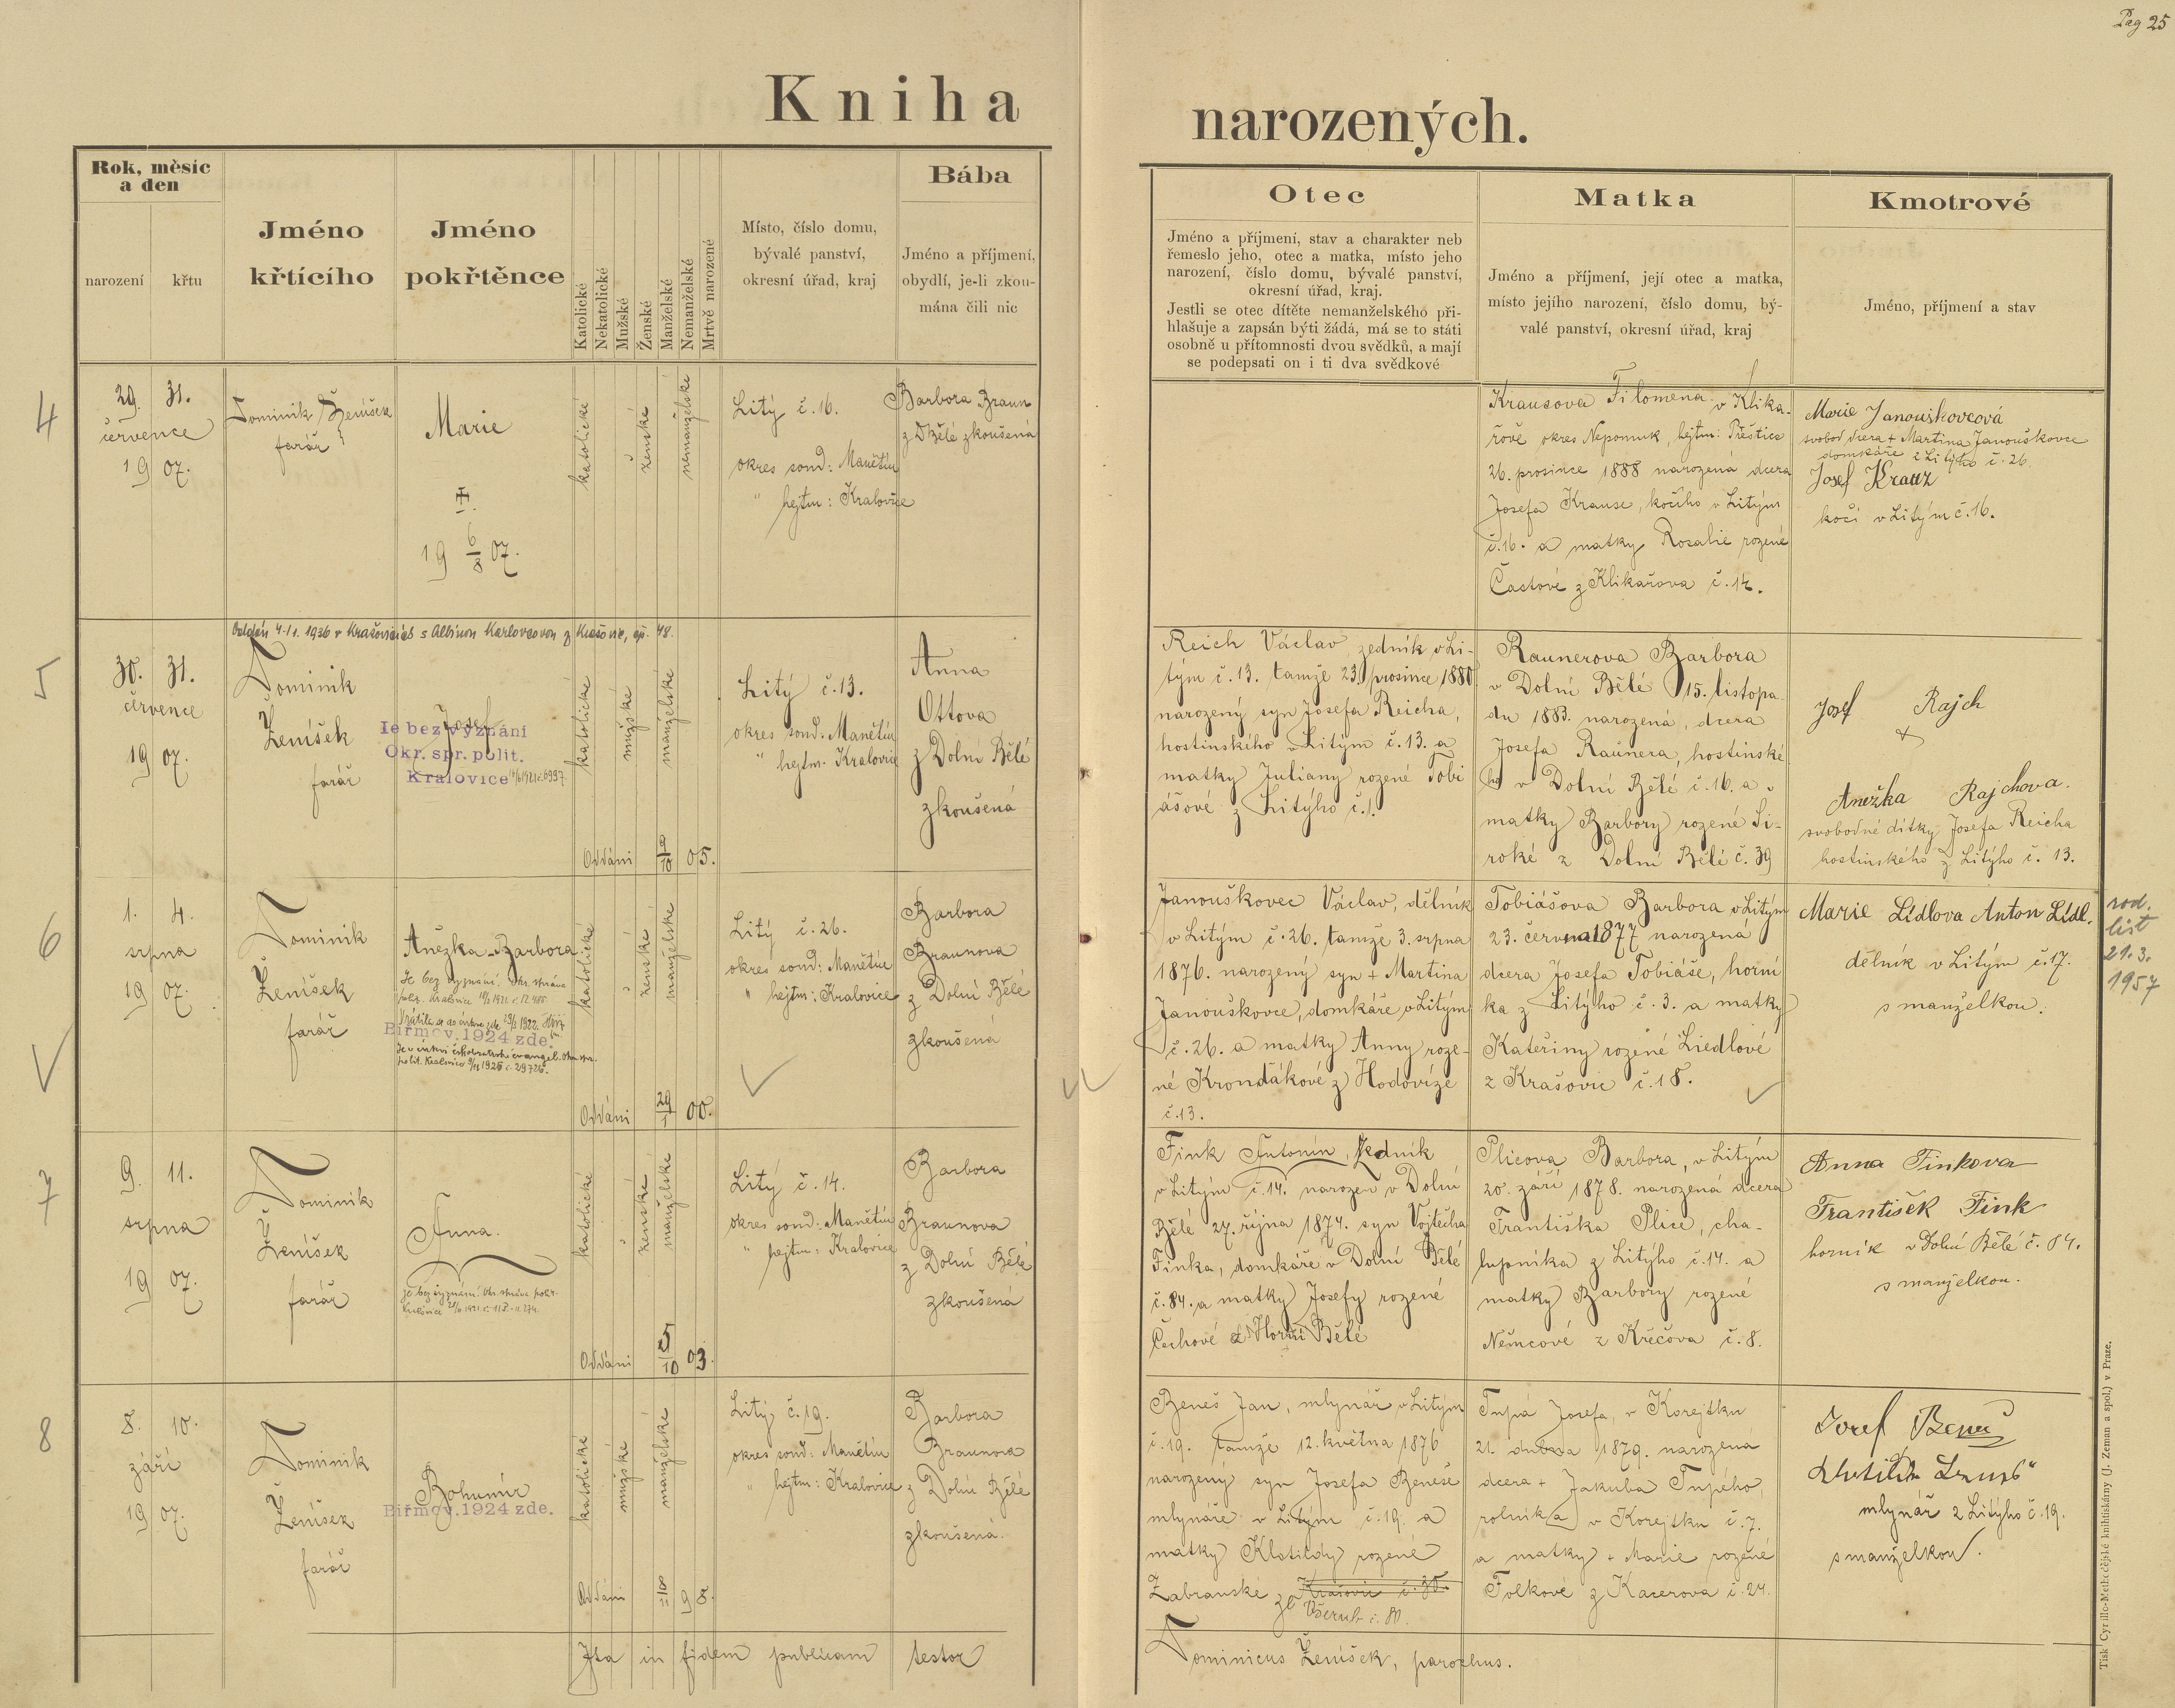 Pag 25
Kniha narozených.
Rok, měsíc
a den
narození
křtu
Jméno
křtícího
Jméno
pokřtěnce
Katolické
Nekatolické
Mužské
Ženské
Manželské
Nemanželské
Mrtvě narozené
Místo, číslo domu,
bývalé panství,
okresní úřad, kraj
Bába
Jméno a příjmení,
obydlí, je-li zkou-
mána čili nic
Otec
Jméno a příjmení, stav a charakter neb
řemeslo jeho, otec a matka, místo jeho
narození, číslo domu, bývalé panství,
okresní úřad, kraj.
Jestli se otec dítěte nemanželského při-
hlašuje a zapsán býti žádá, má se to státi
osobně u přítomnosti dvou svědků, a mají
se podepsati on i ti dva svědkové
Matka
Jméno a příjmení, její otec a matka,
místo jejího narození, číslo domu, bý-
valé panství, okresní úřad, kraj
Kmotrové
Jméno, příjmení a stav
4
29. 31.
července
19 07.
Dominik Ženíšek
farář
Marie
19 6/8 07.
katolické
ženské
nemanželské
Litý č. 16.
okres soud: Manětín
" hejtm: Kralovice
Barbora Braun
z D Bělé zkoušená
Krausova Filomena v Klika-
řově okres Nepomuk, hejtm: Přeštice
26. prosince 1888 narozená dcera
Josefa Krause, kočího v Litým
č. 16. a matky Rosalie rozené
Častové z Klikařova č. 14.
Marie Janouškovcová
svobod dcera + Martina Janouškovce
domkáře z Litýho č. 26.
Josef Krauz
kočí v Litým č. 16.
5
Oddán 4.11. 1936 v Krašovicích s Albínou Karlovcovou z Krašovic, čp. 48.
30. 31.
července
19 07.
Dominik
Ženíšek
farář
Josef
Je bez vyznání
Okr. spr. polit.
Kralovice
katolické
mužské
manželské
Oddáni 05.
Litý č. 13.
okres soud: Manětín
" hejtm. Kralovic
Anna
Ottova
z Dolní Bělé
zkoušená
Reich Václav, zedník v Li-
tým č. 13. tamže 23. prosince 1880
narozený syn Josefa Reicha,
hostinského v Litým č. 13. a
matky Juliany rozené Tobi
ášové z Litýho č. 1.
Raunerova Barbora
v Dolní Bělé 15. listopa-
du 1883. narozená, dcera
Josefa Raunera, hostinské
ho v Dolní Bělé č. 16. a
matky Barbory rozené Ši-
roké z Dolní Bělé č. 39
Josef Rajch
Anežka Rajchova.
svobodné dítky Josefa Reicha
hostinského z Litýho č. 13.
6
1. 4.
srpna
19 07.
Dominik
Ženíšek
farář
Anežka Barbora
Je bez vyznání.
Biřmov. 1924 zde.
katolické
ženské
manželské
Oddáni 29/1 00.
Litý č. 26.
okres soud: Manětín
" hejtm: Kralovice
Barbora
Braunova
z Dolní Bělé
zkoušená
Janouškovec Václav, dělník
v Litým č. 26. tamže 3. srpna
1876. narozený syn + Martina
Janouškovce, domkáře v Litým
č. 26. a matky Anny roze-
né Krondákové z Hodovíze
č. 13.
Tobiášova Barbora v Litým
23. června 1877 narozená
dcera Josefa Tobiáše, horní
ka z Litýho č. 3. a matky
Kateřiny rozené Liedlové
z Krašovic č. 18.
Marie Lídlova Anton Lídl.
dělník v Litým č. 17.
s manželkou.
rod.
list
21.3.
1957
7
9. 11.
srpna
19 07.
Dominik
Ženíšek
farář
Anna.
je bez vyznání.
katolické
ženské
manželské
Oddáni 5/10 03.
Litý č. 14.
okres soud: Manětín
" hejtm: Kralovice
Barbora
Braunova
z Dolní Bělé
zkoušená
Fink Antonín, zedník
v Litým č. 14. narozen v Dolní
Bělé 27. října 1874. syn Vojtěcha
Finka, domkáře v Dolní Bělé
č. 84. a matky Josefy rozené
Čechové z Horní Bělé
Plicova Barbora, v Litým
20. září 1878. narozená dcera
Františka Plice, cha-
lupníka z Litýho č. 14. a
matky Barbory rozené
Němcové z Křečova č. 8.
Anna Finkova
František Fink
horník v Dolní Bělé č. 84.
s manželkou.
8
8. 10.
září
19 07.
Dominik
Ženíšek
farář
Bohumír
Biřmov. 1924 zde.
katolické
mužské
manželské
Oddáni 98.
Litý č. 19.
okres soud: Manětín
" hejtm: Kralovice
Barbora
Braunova
z Dolní Bělé
zkoušená.
Beneš Jan, mlynář v Litým
č. 19. tamže 12. května 1876
narozený syn Josefa Beneše
mlynáře v Litým č. 19. a
matky Klotildy rozené
Zabranské ze Krašovic č. 30.
Všerub č. 80.
Tupá Josefa, v Korejtku
21. dubna 1879. narozená
dcera + Jakuba Tupého,
rolníka v Korejtku č. 7.
a matky + Marie rozené
Folkové z Kacerova č. 24.
Josef Beneš
mlynář z Litýho č. 19.
s manželkou.
Ita in fidem publicam testor
Dominicus Ženíšek, parochus.
Tisk Cyrillo-Methodějské knihtiskárny (J. Zeman a spol.) v Praze.